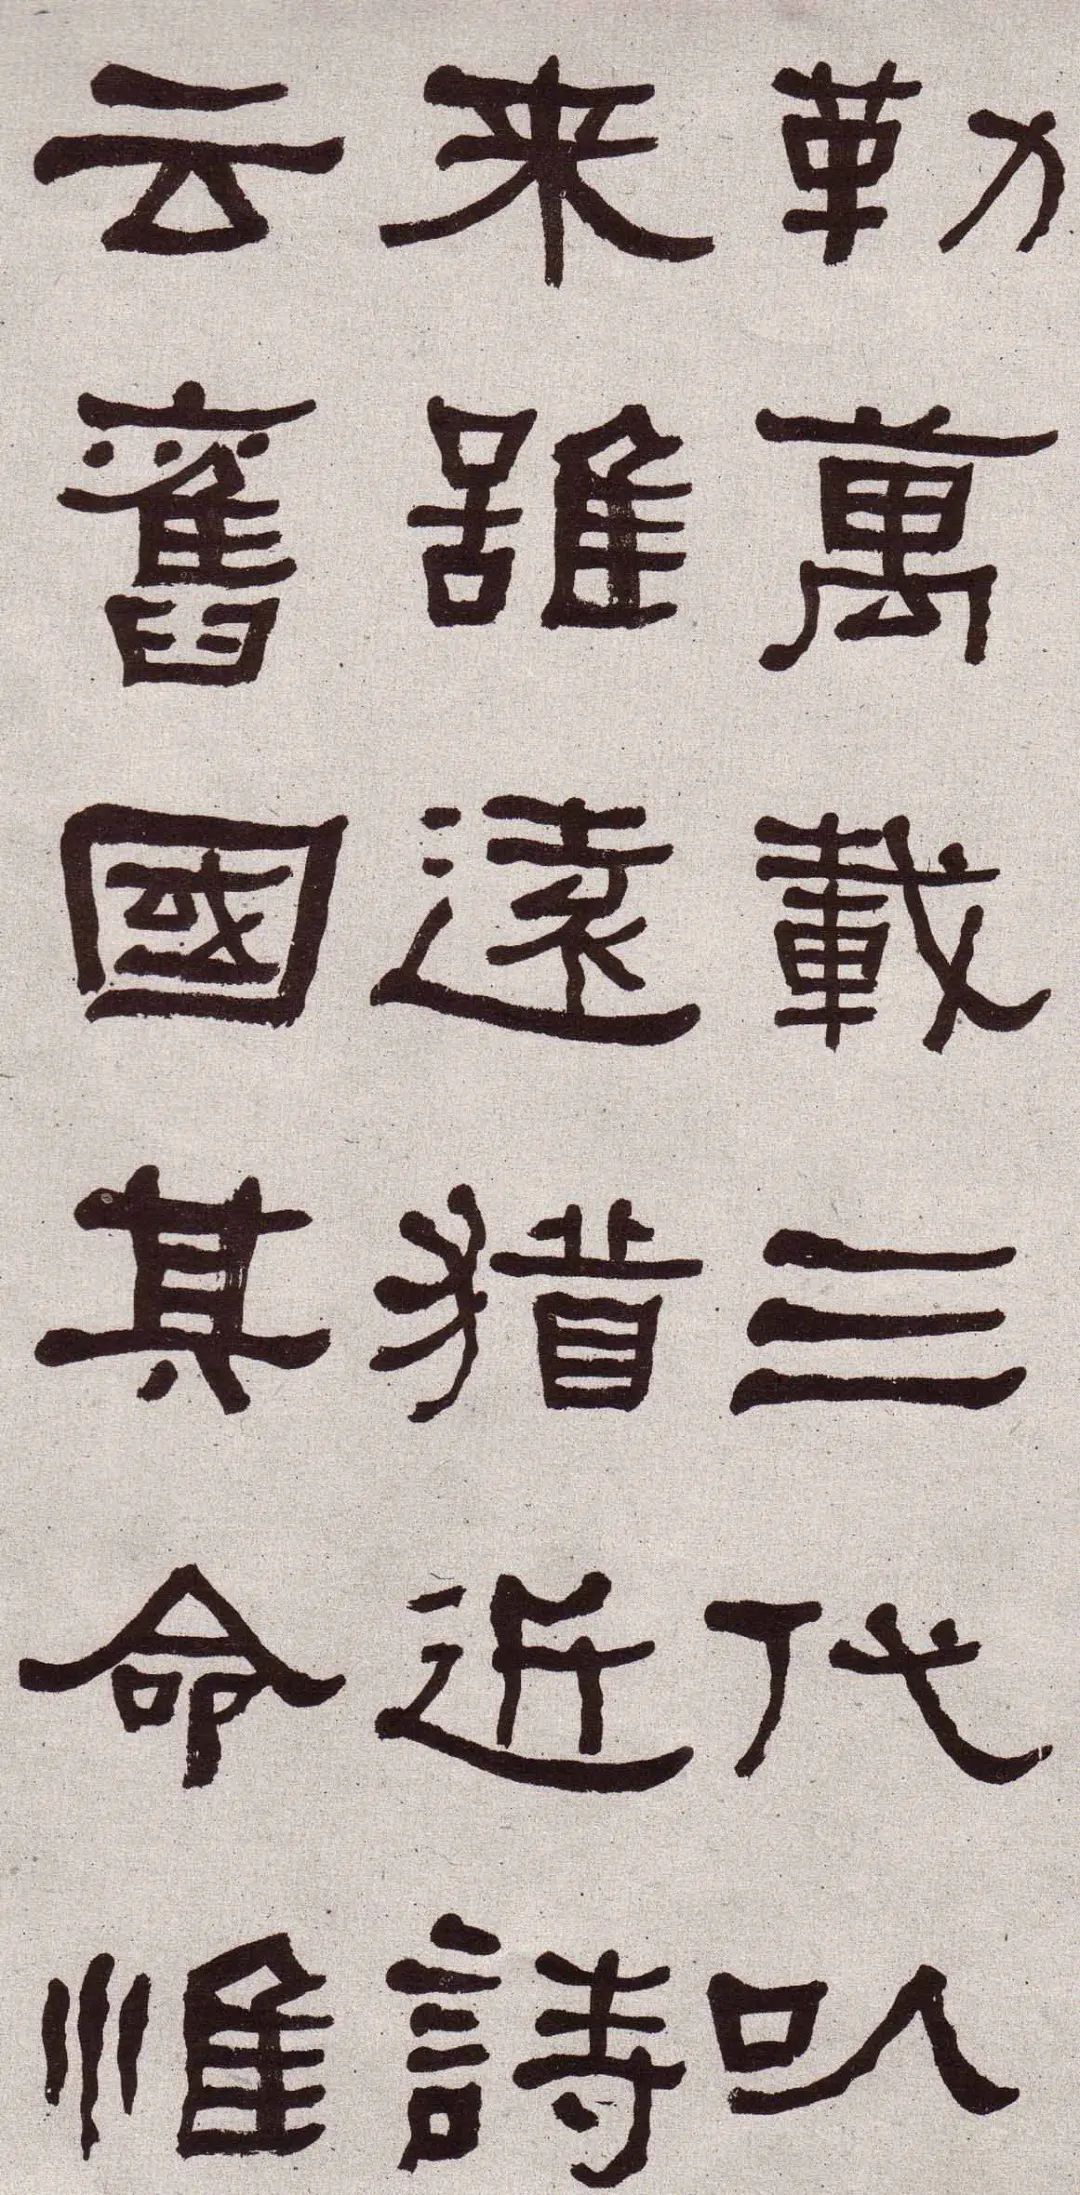 勒萬載三代㕥
来雖遠猎近詩
云舊國其命惟